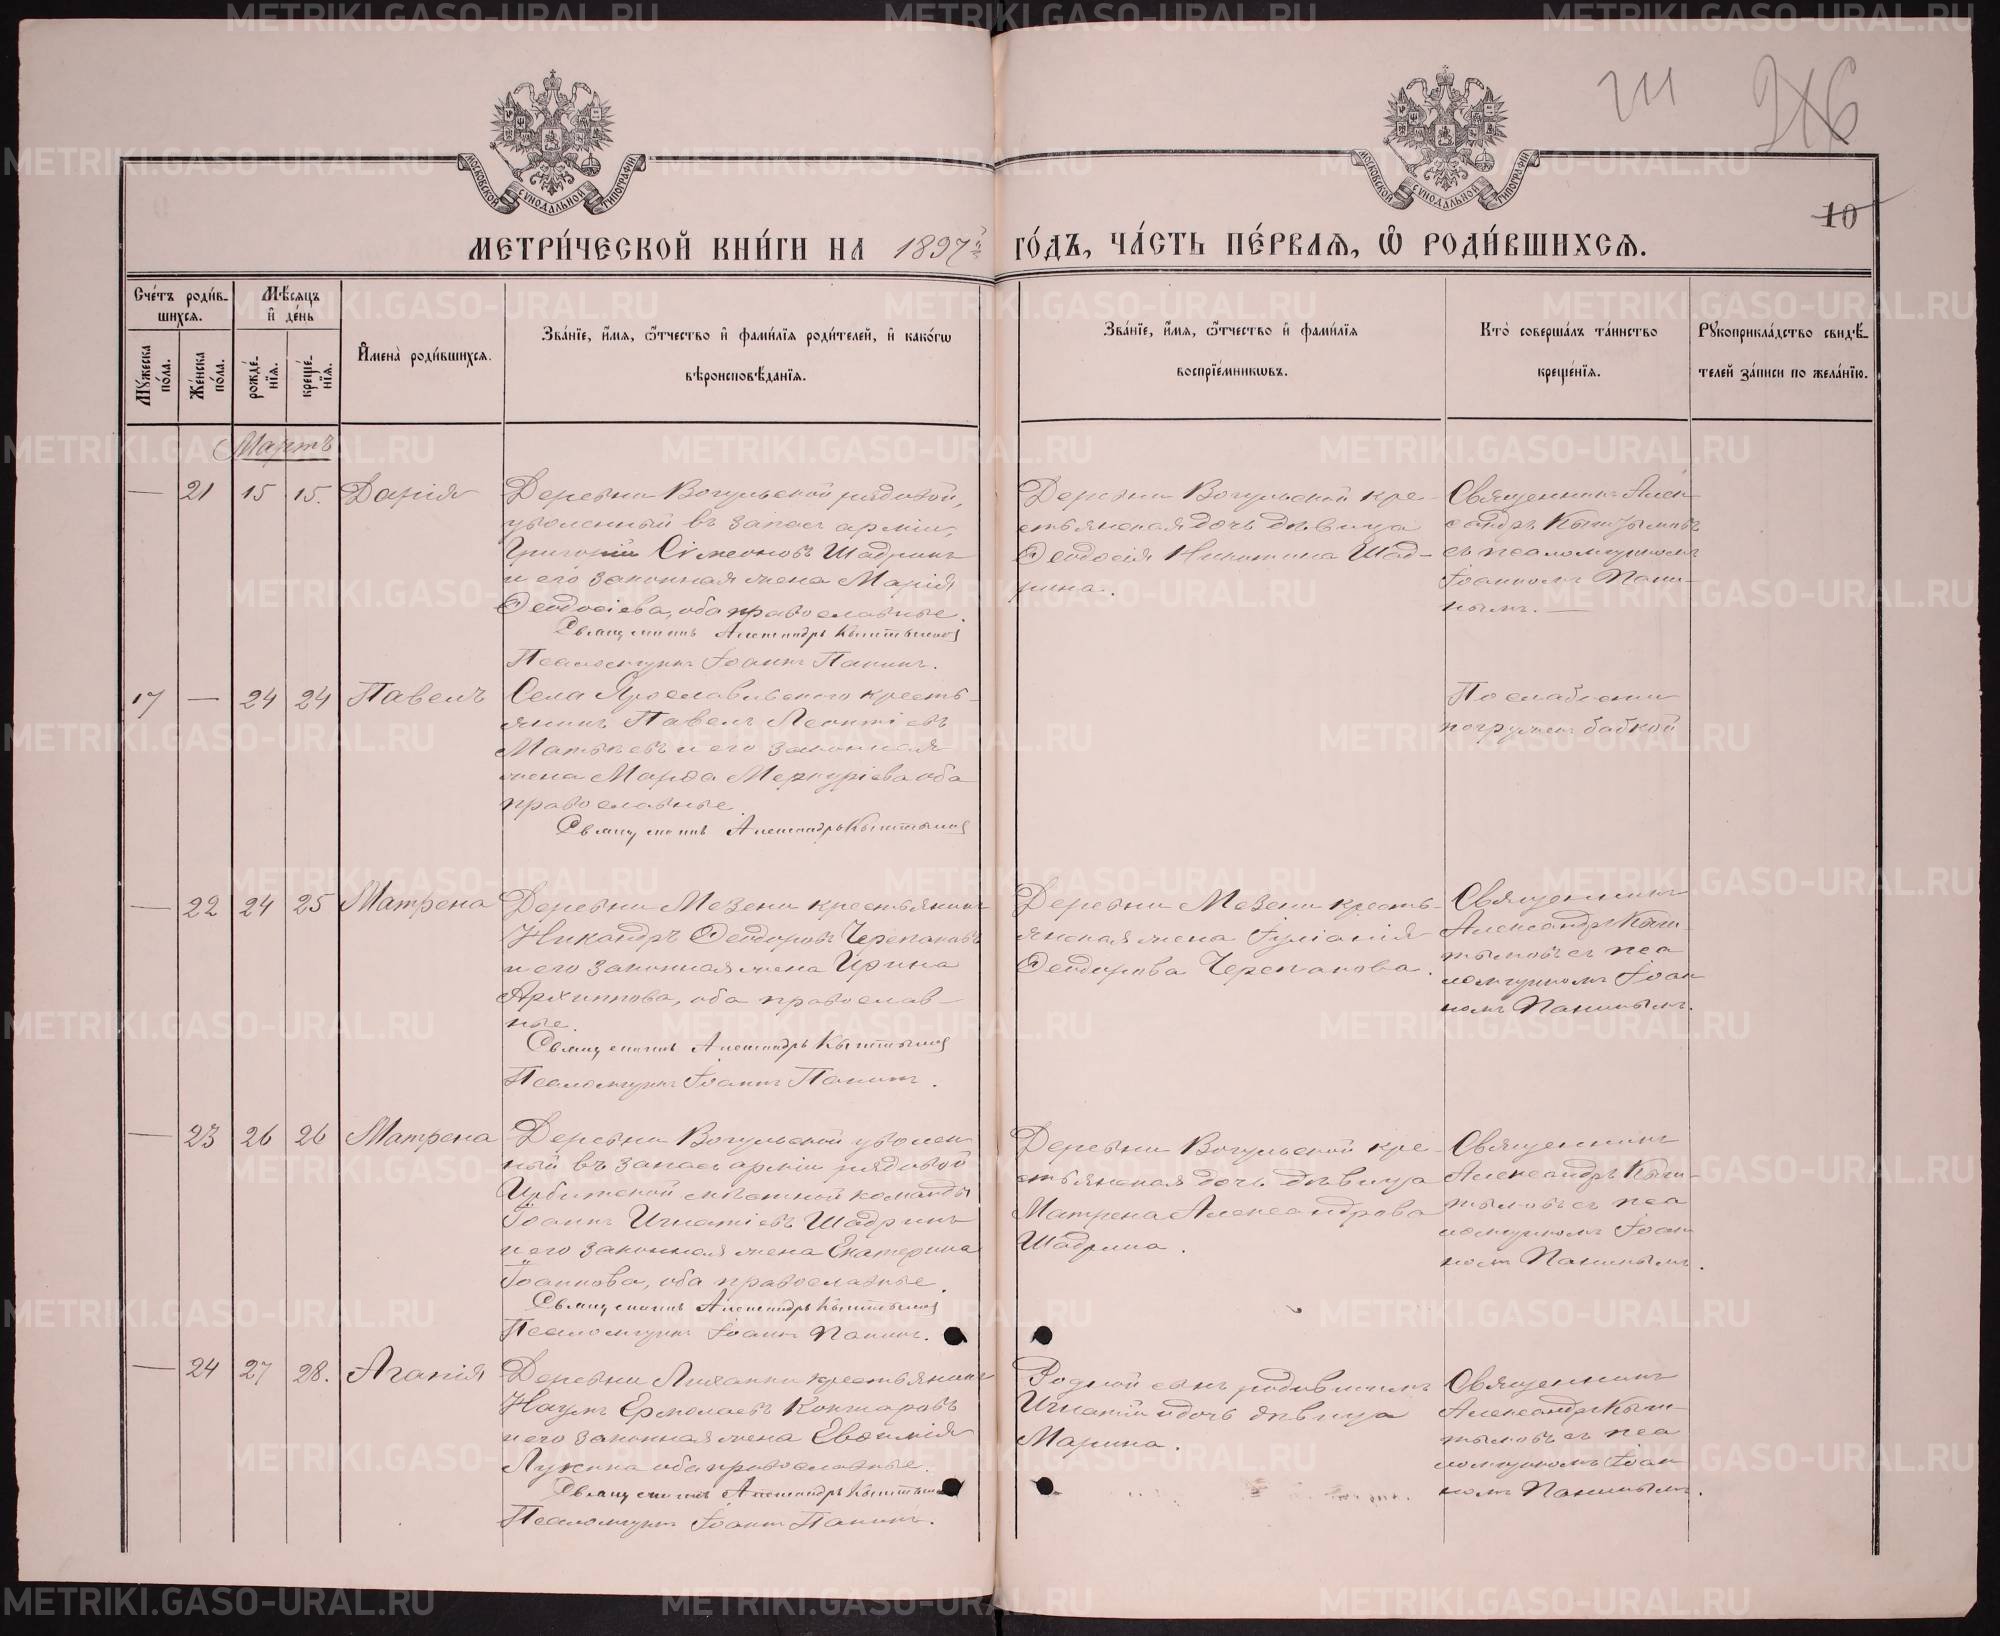 211
246
10
МОСКОВСКОЙ СѴНОДАЛЬНОЙ ТИПОГРАФІИ
МОСКОВСКОЙ СѴНОДАЛЬНОЙ ТИПОГРАФІИ
МЕТРИ́ЧЕСКОЙ КНИ́ГИ НА 1897й ГО́ДЪ, ЧА́СТЬ ПЕ́РВАЯ, Ѽ РОДИ́ВШИХСЯ.
Сче́тъ роди́в-
шихся.
Мꙋ́жеска по́ла.
Же́нска по́ла.
Мѣ́сяцъ и҆ де́нь
рожде́нїя.
креще́нїя.
И҆мена̀ роди́вшихся.
Зва́нїе, и҆́мя, ѻ҆́тчество и҆ фами́лїя роди́телей, и҆ како́гѡ
вѣроисповѣ́данїя.
Зва́нїе, и҆́мя, ѻ҆́тчество и҆ фами́лїя
воспрїе́мникѡвъ.
Кто̀ соверша́лъ та́инство
креще́нїя.
Рꙋкоприкла́дство свидѣ́-
телей за́писи по жела́нїю.
Мартъ
— 21 15 15. Дарія
Деревни Вогульской рядовой,
уволенный въ запасъ арміи,
Григорій Сімеоновъ Шадринъ
и его законная жена Марія
Ѳеодосіева, оба православные.
Священникъ Александръ Кыштымовъ
Псаломщикъ Іоаннъ Панинъ.
Деревни Вогульской кре-
стьянская дочь дѣвица
Ѳеодосія Никитина Шад-
рина.
Священникъ Алек-
сандръ Кыштымовъ
съ псаломщикомъ
Іоанномъ Пани-
нымъ. —
17 — 24 24 Павелъ
Села Ярославльского кресть-
янинъ Павелъ Леонтіевъ
Матвѣевъ и его законная
жена Марѳа Меркуріева оба
православные.
Священникъ Александръ Кыштымовъ
По слабости
погружен бабкой
— 22 24 25 Матрена
Деревни Мезени крестьянинъ
Никандръ Ѳеодоровъ Черепановъ
и его законная жена Ирина
Архиппова, оба православ-
ные.
Священникъ Александръ Кыштымовъ
Псаломщикъ Іоаннъ Панинъ.
Деревни Мезени кресть-
янская жена Іуліанія
Ѳеодорова Черепанова.
Священникъ
Александръ Кыш-
тымовъ съ пса
ломщикомъ Іоан
номъ Панинымъ.
— 23 26 26 Матрена
Деревни Вогульской уволен
ный въ запасъ арміи рядовой
Ирбитской мѣстной команды
Іоаннъ Игнатіевъ Шадринъ
и его законная жена Екатерина
Іоаннова, оба православные.
Священникъ Александръ Кыштымовъ
Псаломщикъ Іоаннъ Панинъ.
Деревни Вогульской кре-
стьянская дочь дѣвица
Матрена Александрова
Шадрина.
Священникъ
Александръ Кыш-
тымовъ съ пса
ломщикомъ Іоан
номъ Панинымъ.
— 24 27 28. Агапія
Деревни крестьянинъ
Наумъ Ермолаевъ
и его законная жена Евѳимія
Лукина оба православные.
Священникъ Александръ Кыштымовъ
Псаломщикъ Іоаннъ Панинъ.
Родной сынъ родившимъ
Игнатій и дочь дѣвица
Марина.
Священникъ
Александръ Кыш-
тымовъ съ пса
ломщикомъ Іоан
номъ Панинымъ.
METRIKI.GASO-URAL.RU